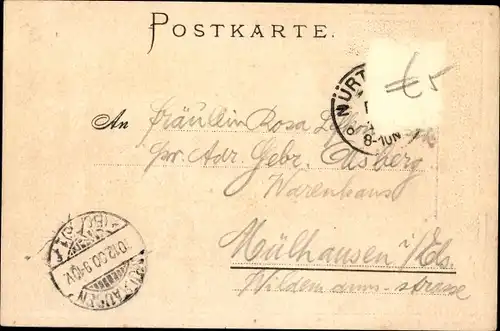 POSTKARTE.
€5
NÜRT
8-10N
An Fräulein Rosa
pr. Adr. Gebr. Elsberg
Warenhaus
Mülhausen i/Els.
Wildemanns-strasse